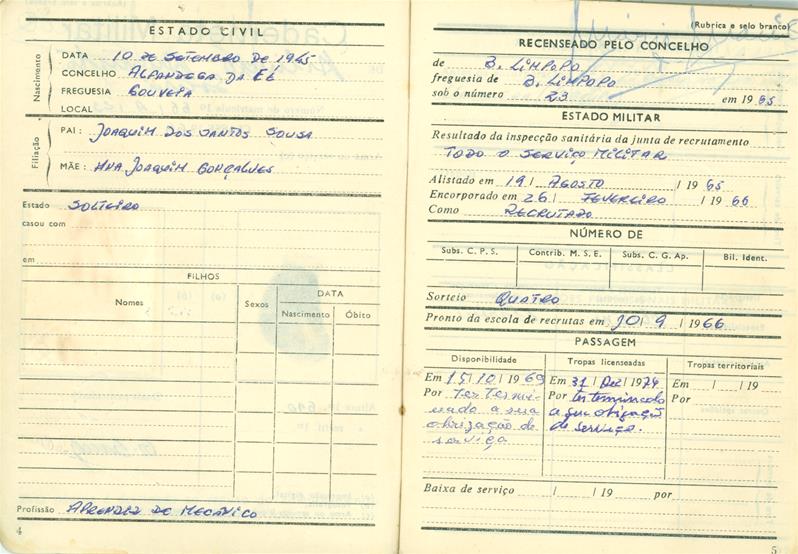 ESTADO CIVIL
Nascimento
DATA 10 DE SETEMBRO DE 1945
CONCELHO ALFANDEGA DA FÉ
FREGUESIA GOUVEIA
LOCAL
Filiação
PAI: JOAQUIM DOS SANTOS SOUSA
MÃE: ANA JOAQUIM GONÇALVES
Estado SOLTEIRO
casou com
em
FILHOS
Nomes Sexos DATA
Nascimento Óbito
Profissão APRENDIZ DE MECÂNICO
4
(Rubrica e selo branco)
RECENSEADO PELO CONCELHO
de B. LIMPOPO
freguesia de B. LIMPOPO
sob o número 23 em 1965
ESTADO MILITAR
Resultado da inspecção sanitária da junta de recrutamento
TODO O SERVIÇO MILITAR
Alistado em 19 / AGOSTO / 1965
Encorporado em 26 / FEVEREIRO / 1966
Como RECRUTADO
NÚMERO DE
Subs. C. P. S. Contrib. M. S. E. Subs. C. G. Ap. Bil. Ident.
Sorteio QUATRO
Pronto da escola de recrutas em 30 / 9 / 1966
PASSAGEM
Disponibilidade Tropas licenseadas Tropas territoriais
Em 15 / 10 / 1969 Em 31 / Dez / 1974 Em / / 19
Por ter termi- Por ter terminado Por
nada a sua a sua obrigação
obrigação de de serviço.
serviço
Baixa de serviço / / 19 por
5